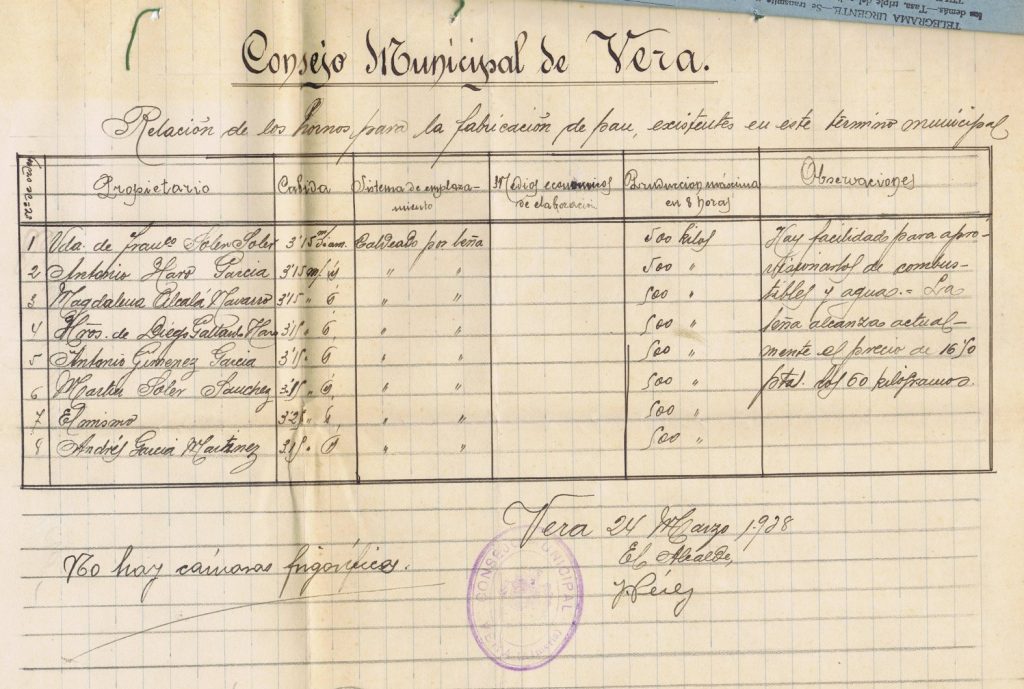 TELEGRAMA URGENTE.—Se transmite
las demás—Tasa, triple del
Consejo Municipal de Vera.
Relación de los hornos para la fabricación de pan, existentes en este término municipal
Propietario Cabida Sistema de emplaza- Medios economicos Producción máxima Observaciones
miento de elaboración en 8 horas
1 Vda. de Franco Soler Soler 3'15 m diam. Caldeado por leña 500 kilos Hay facilidad para apro-
2 Antonio Haro Garcia 3'15 " " 500 " visionarlos de combus-
3 Magdalena Alcalá Navarro 3'15 " " " " 500 " tibles y agua.= La
4 Hros. de Diego Gallardo Haro 3'15 " " " 500 " leña alcanza actual-
5 Antonio Gimenez Garcia 3'15 " " " 500 " mente el precio de 16'50
6 Martin Soler Sanchez 3'15 " " " 500 " ptas. los 60 kilogramos.
7 El mismo 3'25 " " " 500 "
8 Andrés Garcia Martinez 3'15 " " " 500 "
Vera 24 Marzo 1.938
El Alcalde,
No hay cámaras frigoríficas.
CONSEJO MUNICIPAL
VERA